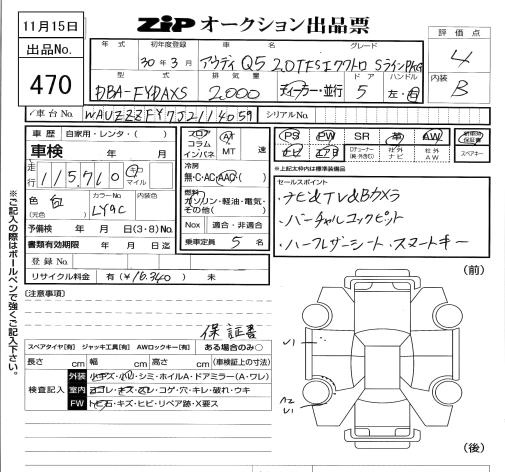 11月15日
ZIP オークション出品票
出品No.
470
年式 初年度登録 車名 グレード
30年3月 アウディ Q5 2.0TFSIクワトロ SラインPKG
型式 排気量 ドア ハンドル
DBA-FYDAXS 2,000 ディーラー・並行 5 左・右
評価点
4
内装
B
車台No. WAUZZZFY7J2114059 シリアルNo.
車歴 自家用・レンタ( )
車検 年 月
走行 115,710 キロ マイル
色 白 カラーNo. LY9C 内装色
(元色)
予備検 年 月 日 (3・8)No.
書類有効期限 年 月 日迄
登録No.
リサイクル料金 有(¥16,340) 未
フロア コラム インパネ AT MT 速
冷房
無・C・AC・AAC
燃料
ガソリン・軽油・電気・その他( )
Nox 適合・非適合
乗車定員 5 名
PS PW SR 革 AW
ナビ エアB 社外ナビ 社外AW スペアキー
※上記太枠内は標準装備品
セールスポイント
・ナビ&TV&Bカメラ
・バーチャルコックピット
・ハーフレザーシート スマートキー
※ご記入の際はボールペンで強くご記入下さい。
[注意事項]
保証書
スペアタイヤ[有] ジャッキ工具[有] AWロックキー[有] ある場合のみ○
長さ cm 幅 cm 高さ cm (車検証上の寸法)
検査記入
外装 小キズ・小凹・シミ・ホイルA・ドアミラー(A・ワレ)
室内 ヨゴレ・キズ・スレ・コゲ・穴・キレ・破れ・ウキ
FW トビ石・キズ・ヒビ・リペア跡・X要ス
(前)
U1
A2
U1
(後)